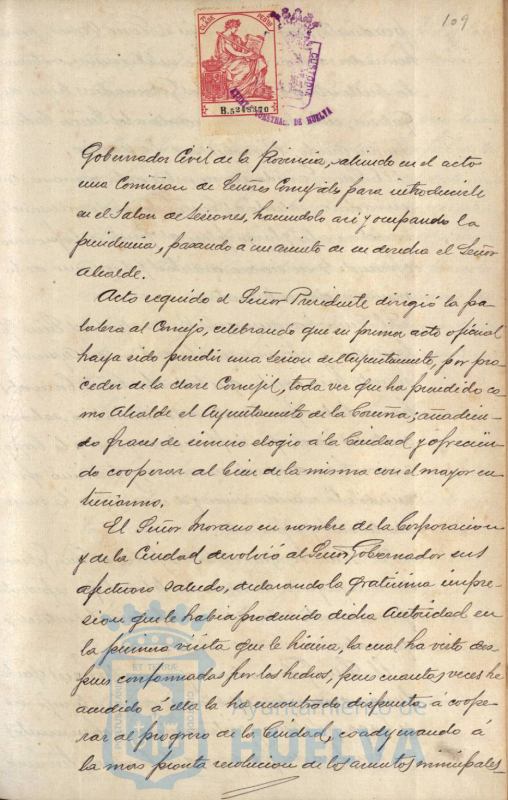 109
B.5248370
CUSTODIA
CONSTNAL. DE HUELVA
Gobernador Civil de la Provincia, saliendo en el acto
una Comisión de Señores Concejales para introducirle
en el Salon de Sesiones, haciéndolo así y ocupando la
presidencia, pasando á un asiento de su derecha el Señor
Alcalde.
Acto seguido el Señor Presidente dirigió la pa-
labra al Concejo, celebrando que su primer acto oficial
haya sido presidir una sesion del Ayuntamiento, por pro-
ceder de la clase Concejil, toda vez que ha presidido co-
mo Alcalde el Ayuntamiento de la Coruña; añadien-
do frases de sincero elogio á la Ciudad y ofrecien-
do cooperar al bien de la misma con el mayor en-
tusiasmo.
El Señor Morano en nombre de la Corporacion
y de la Ciudad devolvió al Señor Gobernador su
afectuoso saludo, declarando la gratisima impre-
sion que le habia producido dicha Autoridad en
la primera visita que le hiciera, la cual ha visto des-
pues confirmadas por los hechos, pues cuantas veces he
acudido á ella la ha encontrado dispuesta á coope-
rar al progreso de la Ciudad, coadyuvando á
la mas pronta resolucion de los asuntos municipales
Ayuntamiento de
HUELVA